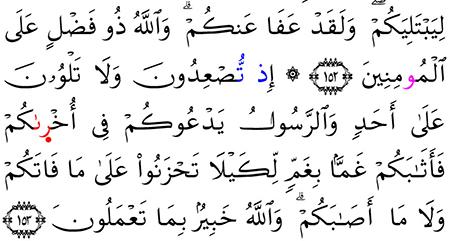 لِيَبۡتَلِيَكُمۡۖ وَلَقَدۡ عَفَا عَنكُمۡۗ وَٱللَّهُ ذُو فَضۡلٍ عَلَى
ٱلۡمُومِنِينَ ١٥٢ ۞ إِذ تُّصۡعِدُونَ وَلَا تَلۡوُۥنَ
عَلَىٰٓ أَحَدٖ وَٱلرَّسُولُ يَدۡعُوكُمۡ فِيٓ أُخۡرىٰكُمۡ
فَأَثَٰبَكُمۡ غَمَّۢا بِغَمّٖ لِّكَيۡلَا تَحۡزَنُواْ عَلَىٰ مَا فَاتَكُمۡ
وَلَا مَآ أَصَٰبَكُمۡۗ وَٱللَّهُ خَبِيرُۢ بِمَا تَعۡمَلُونَ ١٥٣